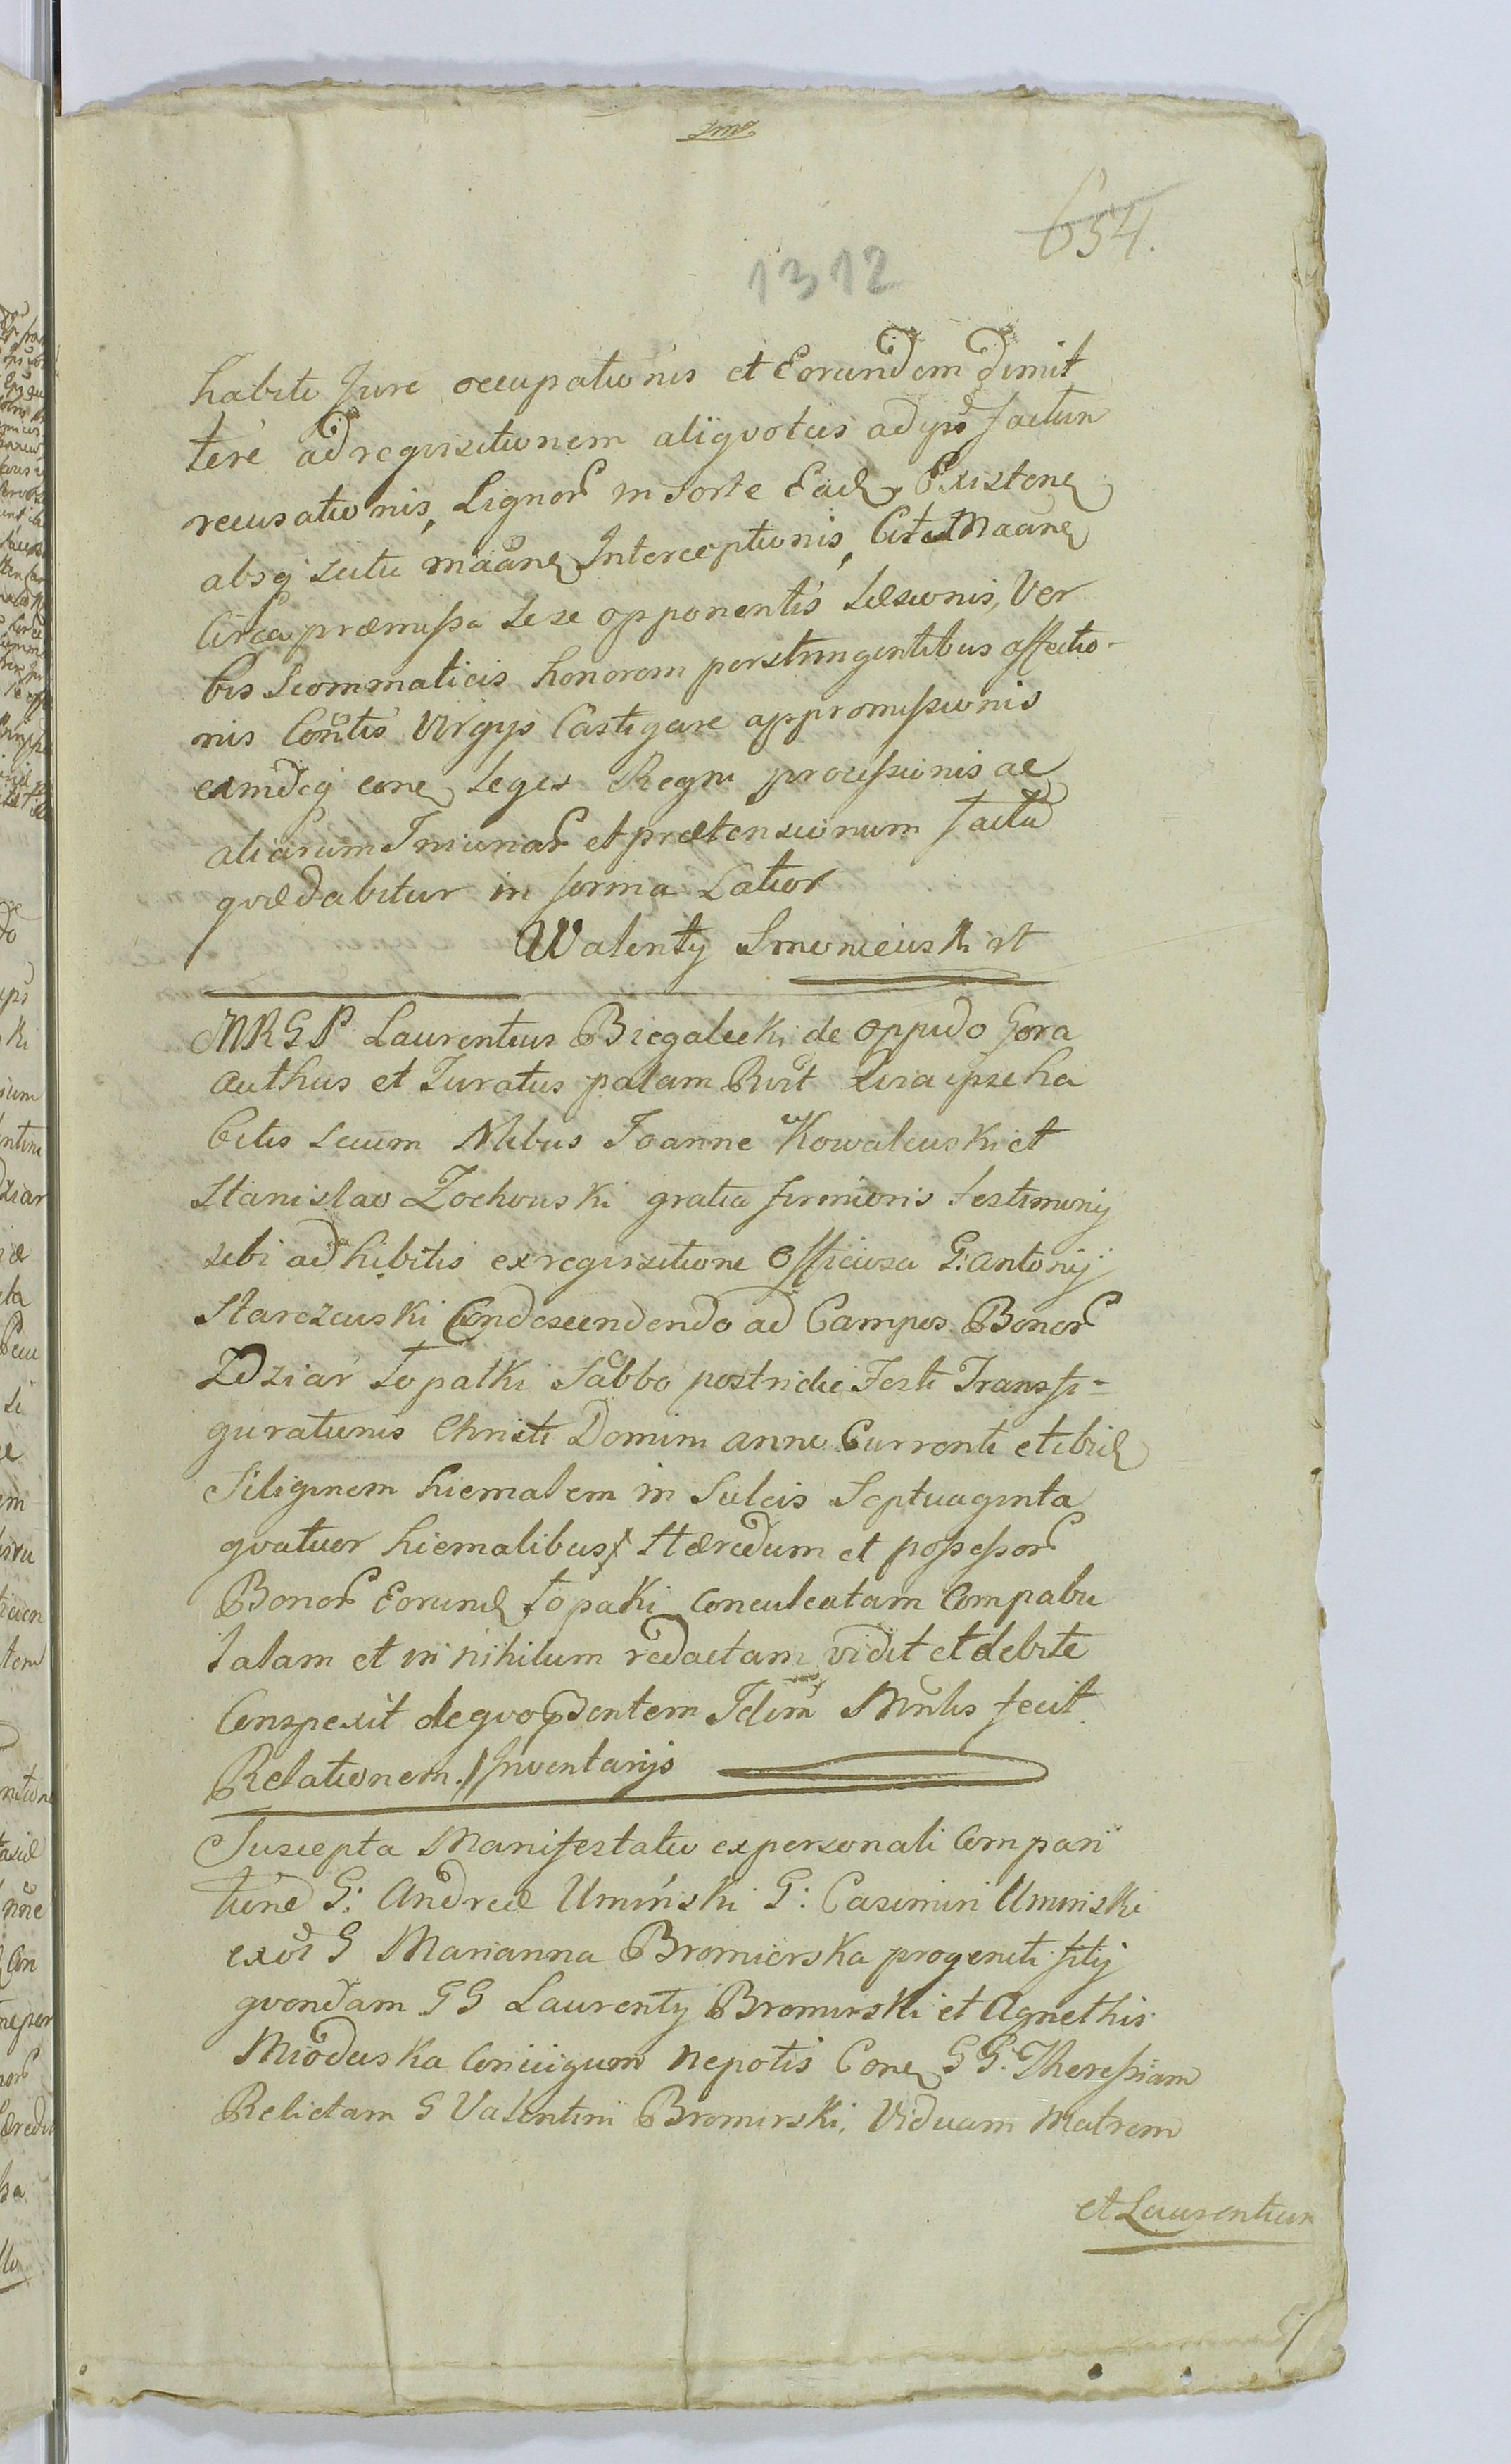 654.
1312
habiti Jure occupationis et Eorundem dimit
tere ad requisitionem aliqvoties ad ips factum
recusationis, Lignor in Sorte Ead Existen
absq scitu Interceptionis,
Circa præmissa sese opponentis Læsionis, Ver
bis Scommaticis honorem perstringentibus affectio-
nis Contis Virgys Castigare appromissionis
eamdeq conc Leges Regni processionis ac
aliarum Iniuriar et prætensionum factu
qvæ dabitur in forma Latior
Walenty
MRGP Laurentius Biegalecki de Oppido Gora
authus et Juratus palam Rvit Quia ipse ha
bitis secum Nlibus Joanne Kowalewski et
Stanislao Zochowski gratia firmioris testimonij
sibi adhibitis ex reqvisitione Officiosa G: Antonij
Starczewski Condescendendo ad Campos Bonor
Zdziar Łopatki Sabbo postridie Festi Transfi-
gurationis Christi Domini anno Currenti et ibid
Siliginem hiemalem in Sulcis Septuaginta
qvatuor hiemalibus Hæredum et possessor
Bonor Eorund Łopaki Conculcatam Compabu
latam et in nihilum redactam vidit et debite
Conspexit de qvo pdentem Idem Minlis fecit
Relationem. // Inventarijs
Suscepta Manifestatio ex personali Compari
tione G: Andreæ Umiński G: Casimiri Uminski
ex G Marianna Bromierska progeniti filij
qvondam GG Laurenty Bromirski et Agnethis
Mioduska Coniugum Nepotis Conc GG. Theressiam
Relictam G Valentini Bromirski, Viduam Matrem
et Laurentium